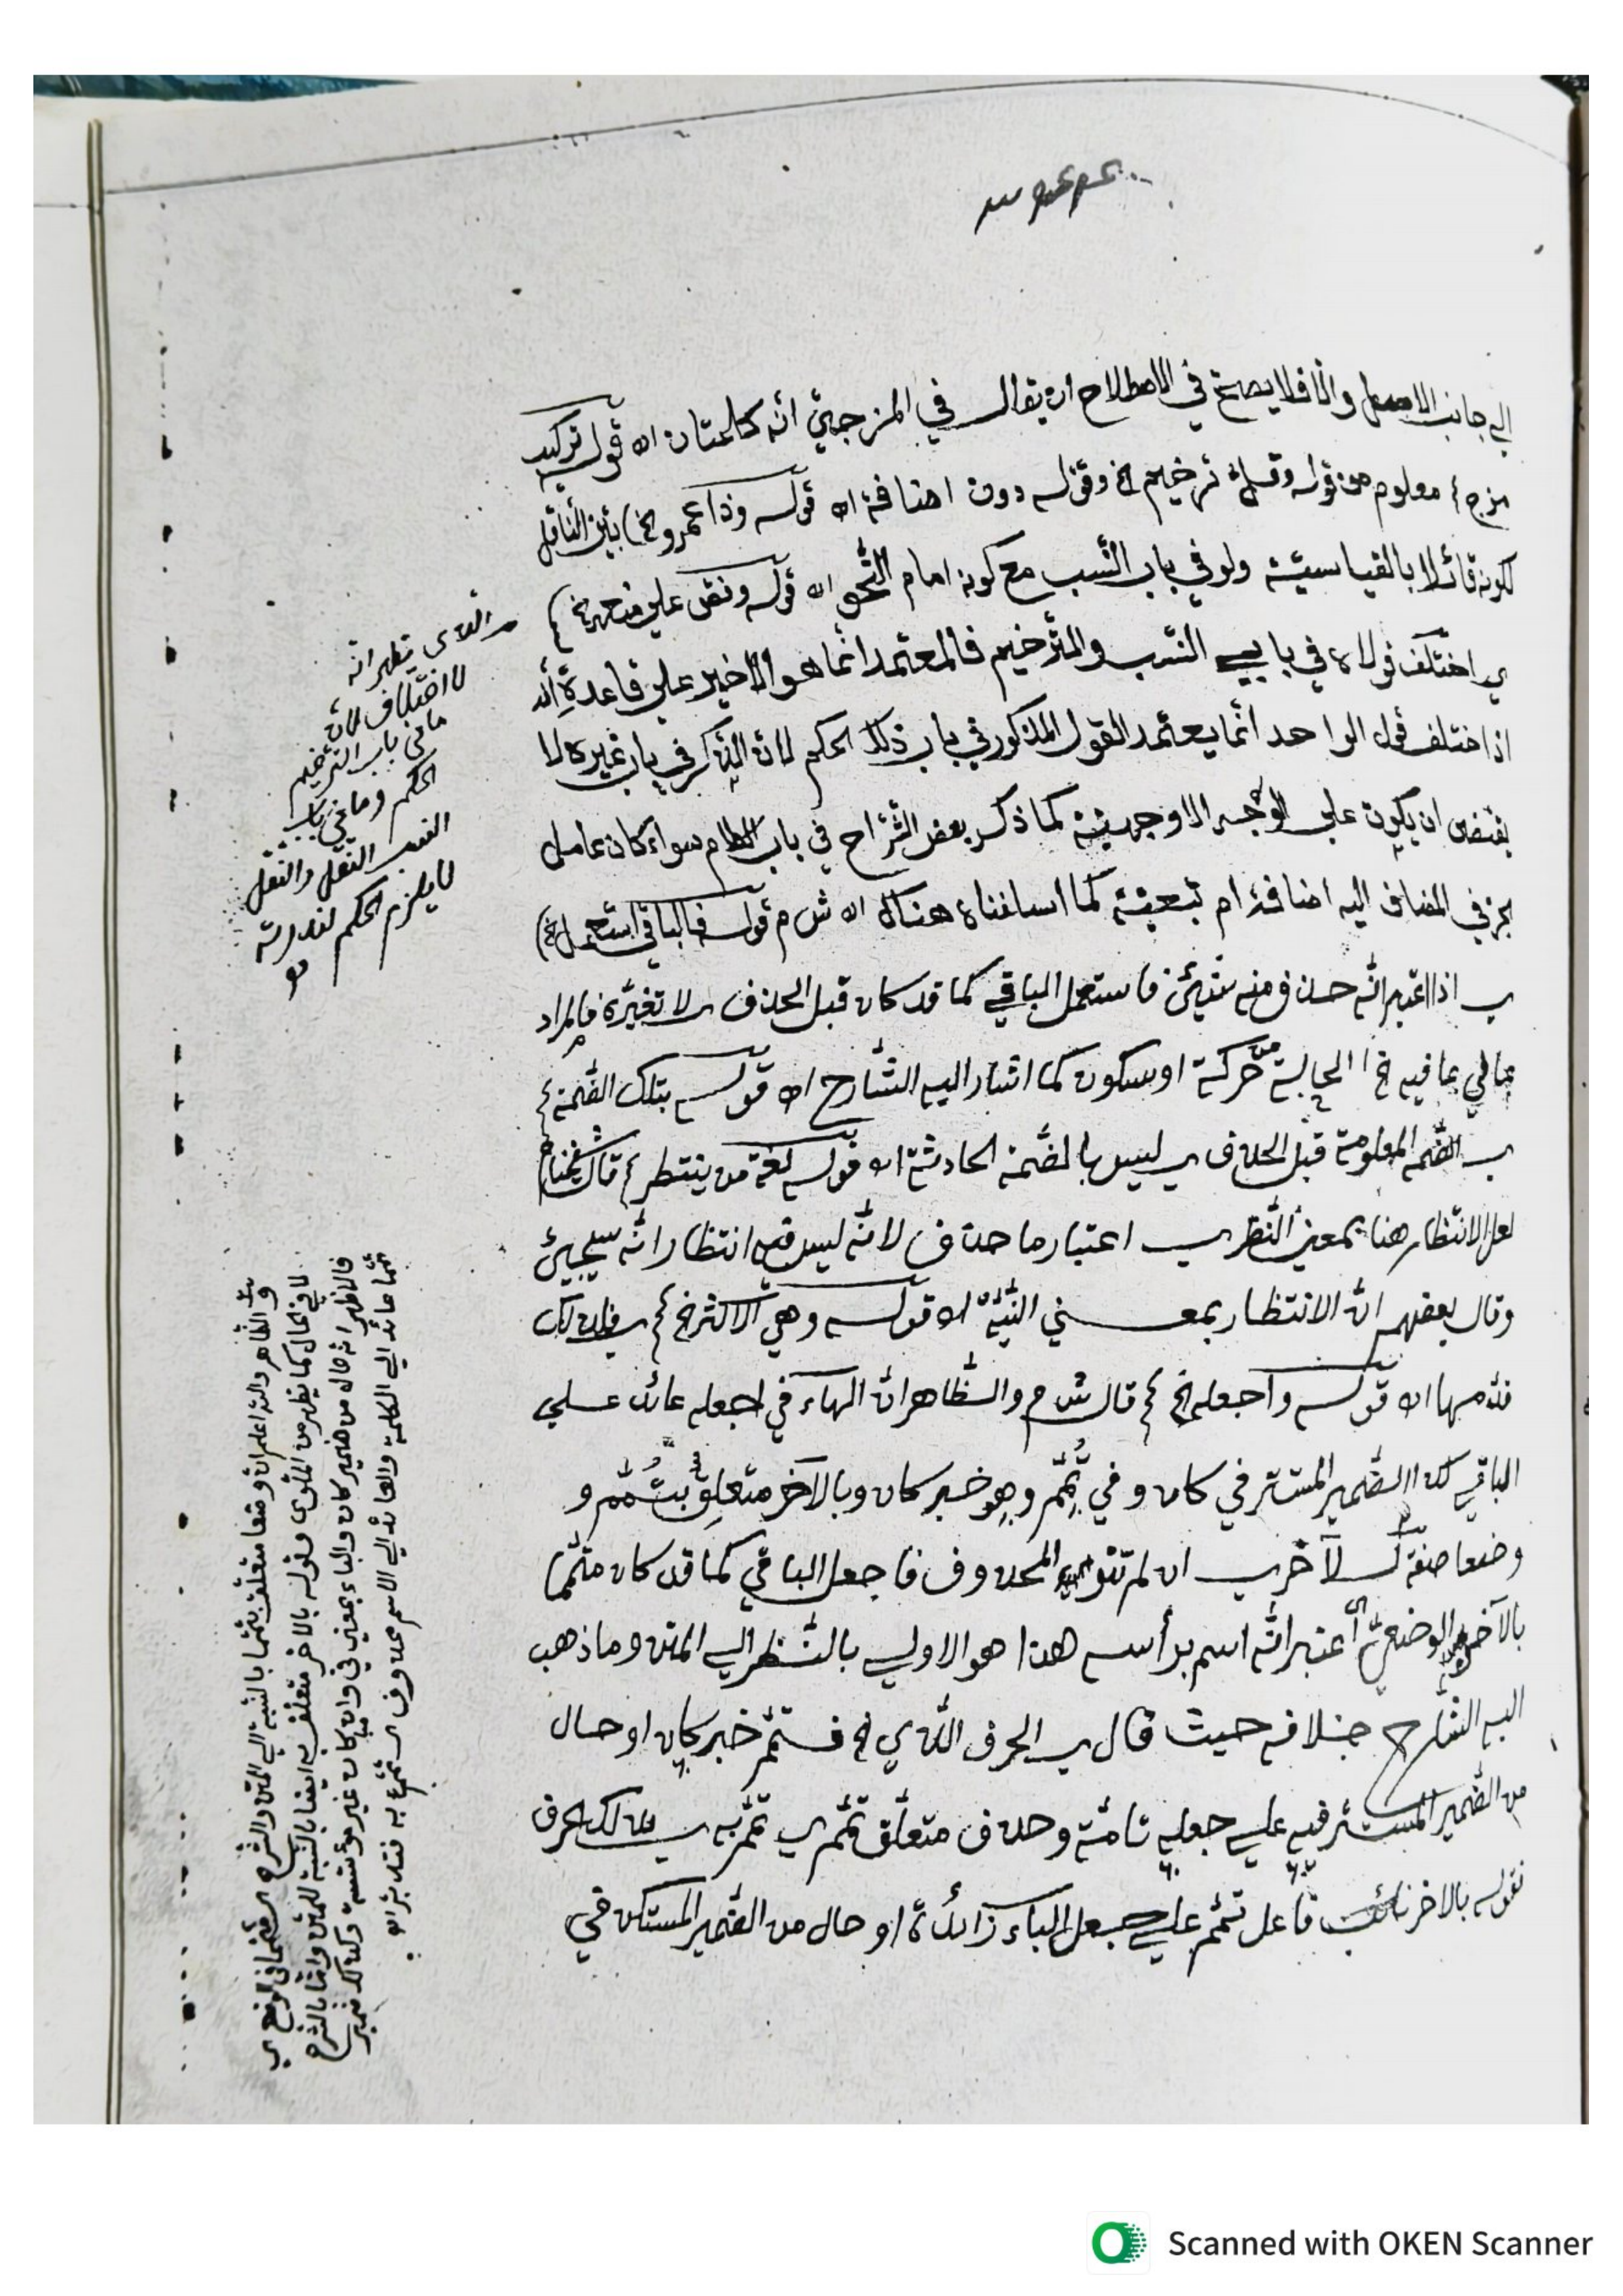 الي جانب الاصل والّا فلا يصحّ في الاصطلاح ان يقال في المزجيّ انّه كلمتان اه قوله تركيب
مزج ۶ معلوم من قوله وقلّ ترخيم الخ وقوله دون اضافة اه قوله وذا عمرو الخ) بيّن الناقل
لكونه قائلا بالقياسيّة ولو في باب النّسب مع كونه امام النّحو اه قوله ونقض علي
ي اختلف قولاه في بابي النّسب والتّرخيم فالمعتمد انّما هو الاخير علي قاعدة أنّه
اذا اختلف قول الواحد انّما يعتمد القول المذكور في باب ذلك الحكم لانّ الذّكر في باب غيره لا
يقتضي ان يكون علي الوجه الاوجهيّة كما ذكر بعض الشّراح في باب سواء كان عامل
بجز في المضاف اليه اضافة ام تبعيّة كما اسلفناه هناك اه ش م قوله فالباقي استعمل الخ)
ي اذا اعتبر انّه حذف منه شيئ فاستعمل الباقي كما قد كان قبل الحذف ي لا تغيّره فالمراد
بما في بما فيه الخ الحالية من حركة او سكون كما اشار اليه الشّارح اه قوله بتلك الضّمة ۶
ي الضّمة المعلومة قبل الحذف ي ليس بالضّمة الحادثة اه قوله لغة من ينتظر ۶ قال شيخنا
لعل الانتظار هنا بمعني النّظر ي اعتبار ما حذف لانّه ليس فيه انتظار انّه سيجيئ
وقال بعضهم انّ الانتظار بمعني النّيّة اه قوله وهي الاكثر الخ ۶ ي فلذلك
قدمها اه قوله واجعله الخ ۶ قال ش م والظّاهر انّ الهاء في اجعله عائد علي
الباقي كذا الضّمير المستتر في كان وفي تُمّم وهو خبر كان وبالآخر متعلّق بتُمّم و
وضعا صفة لـلآخر ي ان لم تنو المحذوف فاجعل الباقي كما قد كان متمّما
بالآخر الوضعيّ أي اعتبر انّه اسم برأسه هذا هو الاولي بالنّظر الي المتن وما ذهب
اليه الشّارح خلافه حيث قال ي الحرف الّذي الخ فـتمّم خبر كان او حال
من الضّمير المستتر فيه علي جعله تامّة وحذف متعلّق تمّم ي تمّم به ي لذلك الحرف
فقوله بالاخر نائب فاعل تمّم علي جعل الباء زائدة او حال من الضّمير المستكن في
يظهر انّه
لا اختلاف لانّ
ما في باب التّرخيم
الحكم وما في باب
النسب النّقل والنّقل
لا يلزم الحكم
والظّاهر والله اعلم انّ وضعا متعلّق بتمّما بالنّسبة الي المتن والشّرح
لا في الحال كما يظهر من وقوله بالاخر متعلّق به ايضا بالنّسبة للمتن وامّا بالشّرح
فالاظهر انّه حال من ضمير كان والباء بمعني في وان كان غير مؤنّسة وكذلك ضمير
تمّما عائد الي الكلمة والعائد الي الاسم محذوف ي تمّم به فتدبّر
Scanned with OKEN Scanner